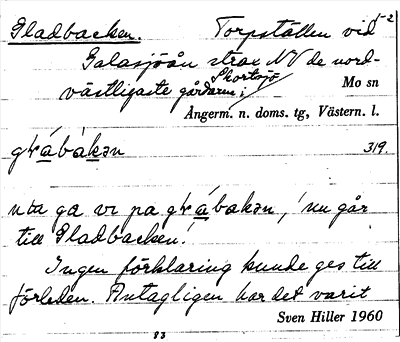 Gladbacken. Torpställen vid 1-2
Galasjöån strax NV de nord-
västligaste gårdarna i Skortsjö Mo sn
Ångerm. n. doms. tg, Västern. l.
319
nɯ ga vi pa
bakən, ! nu går
till Gladbacken!
Ingen förklaring kunde ges till
förleden. Antagligen har det varit
Sven Hiller 1960
83